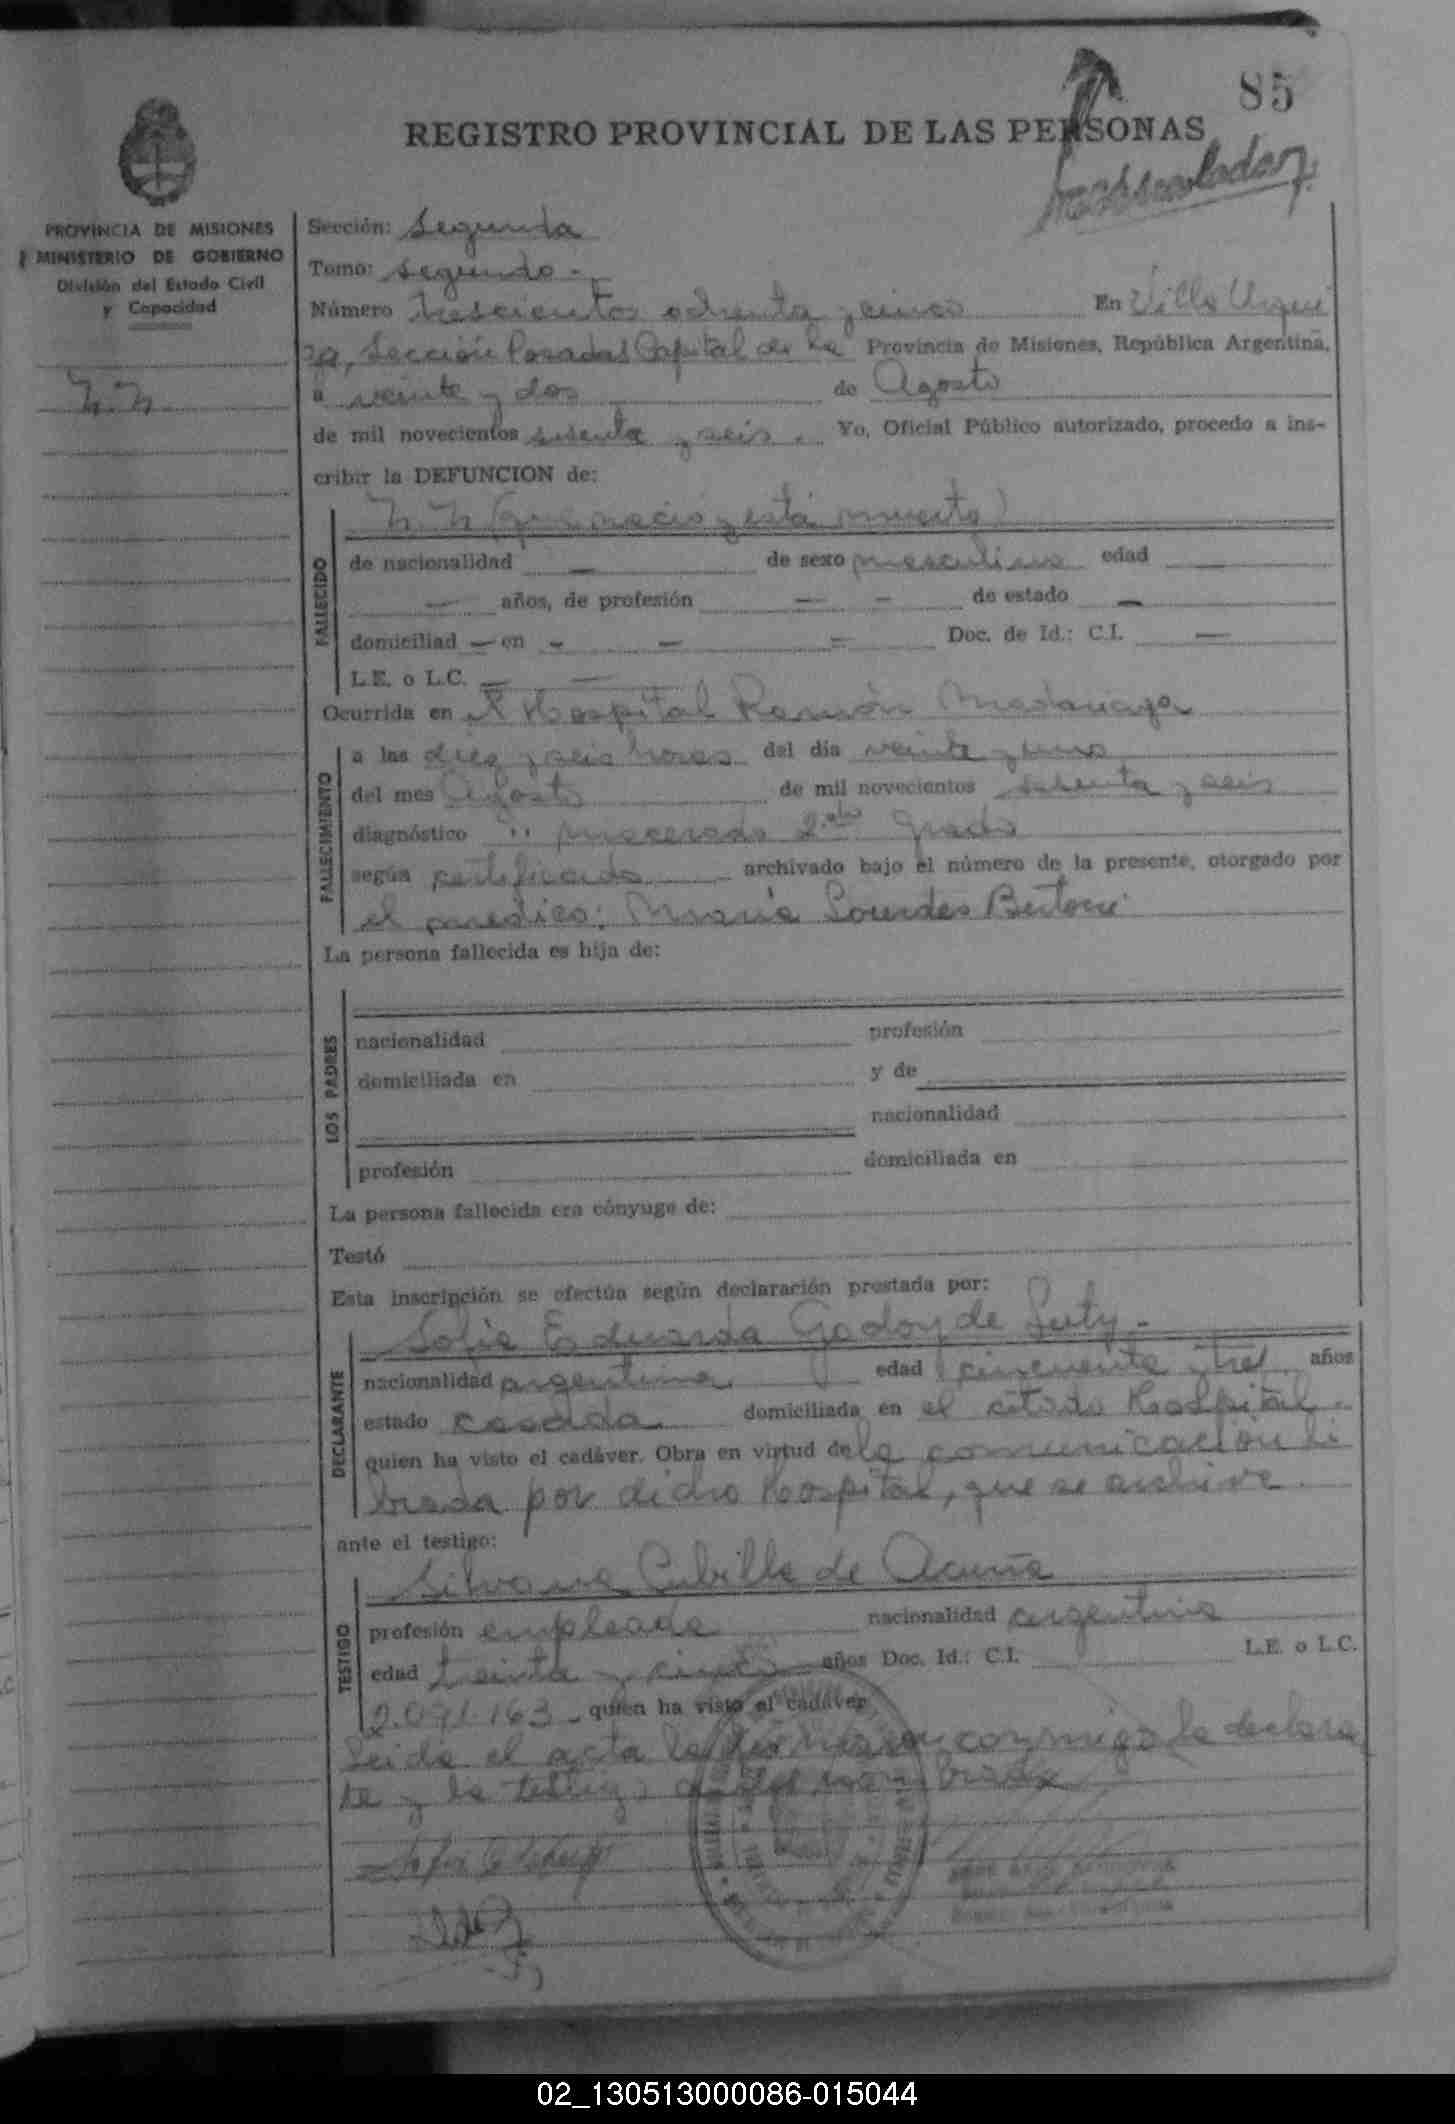 85
REGISTRO PROVINCIAL DE LAS PERSONAS
PROVINCIA DE MISIONES
MINISTERIO DE GOBIERNO
División del Estado Civil
y Capacidad
N.N.
Sección: Segunda
Tomo: Segundo.-
Número trescientos ochenta y cinco En Villa Urqui
za, Sección Posadas Capital de la Provincia de Misiones, República Argentina,
a veinte y dos de Agosto
de mil novecientos setenta y seis. Yo, Oficial Público autorizado, procedo a ins-
cribir la DEFUNCION de:
N.N (que nació y está muerto)
FALLECIDO
de nacionalidad — de sexo masculino edad —
— años, de profesión — - de estado —
domiciliad — en - — = Doc. de Id.: C.I. —
L.E. o L.C. — —
Ocurrida en el Hospital Ramón Madariaga
FALLECIMIENTO
a las diez y seis horas del día veinte y uno
del mes Agosto de mil novecientos setenta y seis
diagnóstico " macerado 2.do grado
según certificado archivado bajo el número de la presente, otorgado por
el médico: María Lourdes Bertoni
La persona fallecida es hija de:
LOS PADRES
nacionalidad profesión
domiciliada en y de
nacionalidad
profesión domiciliada en
La persona fallecida era cónyuge de:
Testó
Esta inscripción se efectúa según declaración prestada por:
Sofia Eduarda Godoy de
DECLARANTE
nacionalidad argentina edad cincuenta y tres años
estado casada domiciliada en el citado Hospital.
quien ha visto el cadáver. Obra en virtud de la comunicación li
brada por dicho Hospital, que se archiva.
ante el testigo:
Silvana Cubilla de Acuña
TESTIGO
profesión empleada nacionalidad argentina
edad treinta y cinco años Doc. Id.: C.I. L.E. o L.C.
2.091.163 - quien ha visto el cadáver
Leida el acta la firmaron conmigo la declara
te y la testigo
02_130513000086-015044